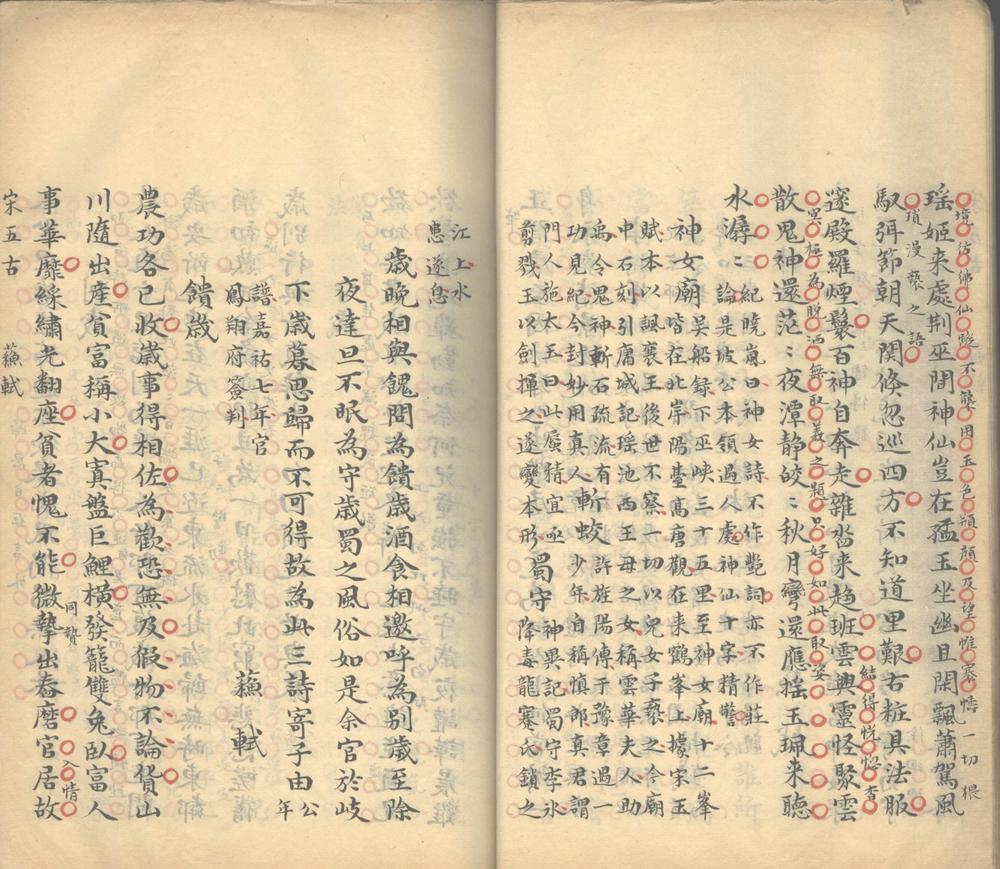 瑶姬来處荆巫間神仙豈在猛玉坐幽且閑飄蕭駕風
馭弭節朝天關倐忽巡四方不知道里艱古粧具法服
邃殿羅煙鬟百神自奔走雜沓来趋班雲輿靈怪聚雲
散鬼神還茫〻夜潭静皎〻秋月彎還應摇玉珮来聽
水潺〻
紀曉嵐曰神女詩不作艶詞亦不作莊
論是坡公本領過人處神仙十字精警
神女廟
吳船錄下巫峡三十五里至神女廟十二峯
皆在北岸陽臺高唐觀在来鶴峯上據宋玉
賦本以諷襄王後世不察一切以兒女子褻之今廟
中石刻引庸城記瑶池西王母之女稱雲華夫人助
禹令鬼神斬石疏流有
功見紀今封妙用真人
斬蛟
許旌陽傳于豫章遇一
少年自稱慎郎真君謂
門人施太玉曰此蜃精宜亟
剪戮玉以劍揮之遂變本形
蜀守
神異記蜀守李氷
降毒龍蹇氏鎖之
江上水
患遂息
歲晚相與餽問為饋歲酒食相邀呼為别歲至除
夜達旦不眠為守歲蜀之風俗如是余官於岐
下歲暮思歸而不可得故為此三詩寄子由
公年
譜嘉祐七年官
鳳翔府簽判
蘓軾
饋歲
農功各已收歲事得相佐為歡恐無及假物不論貨山
川隨出産貧富稱小大寘盤巨鯉橫發籠雙兔卧富人
事華靡綵繡光翻座貧者愧不能微摯出舂磨官居故
同贄
入情
宋五古
蘓軾